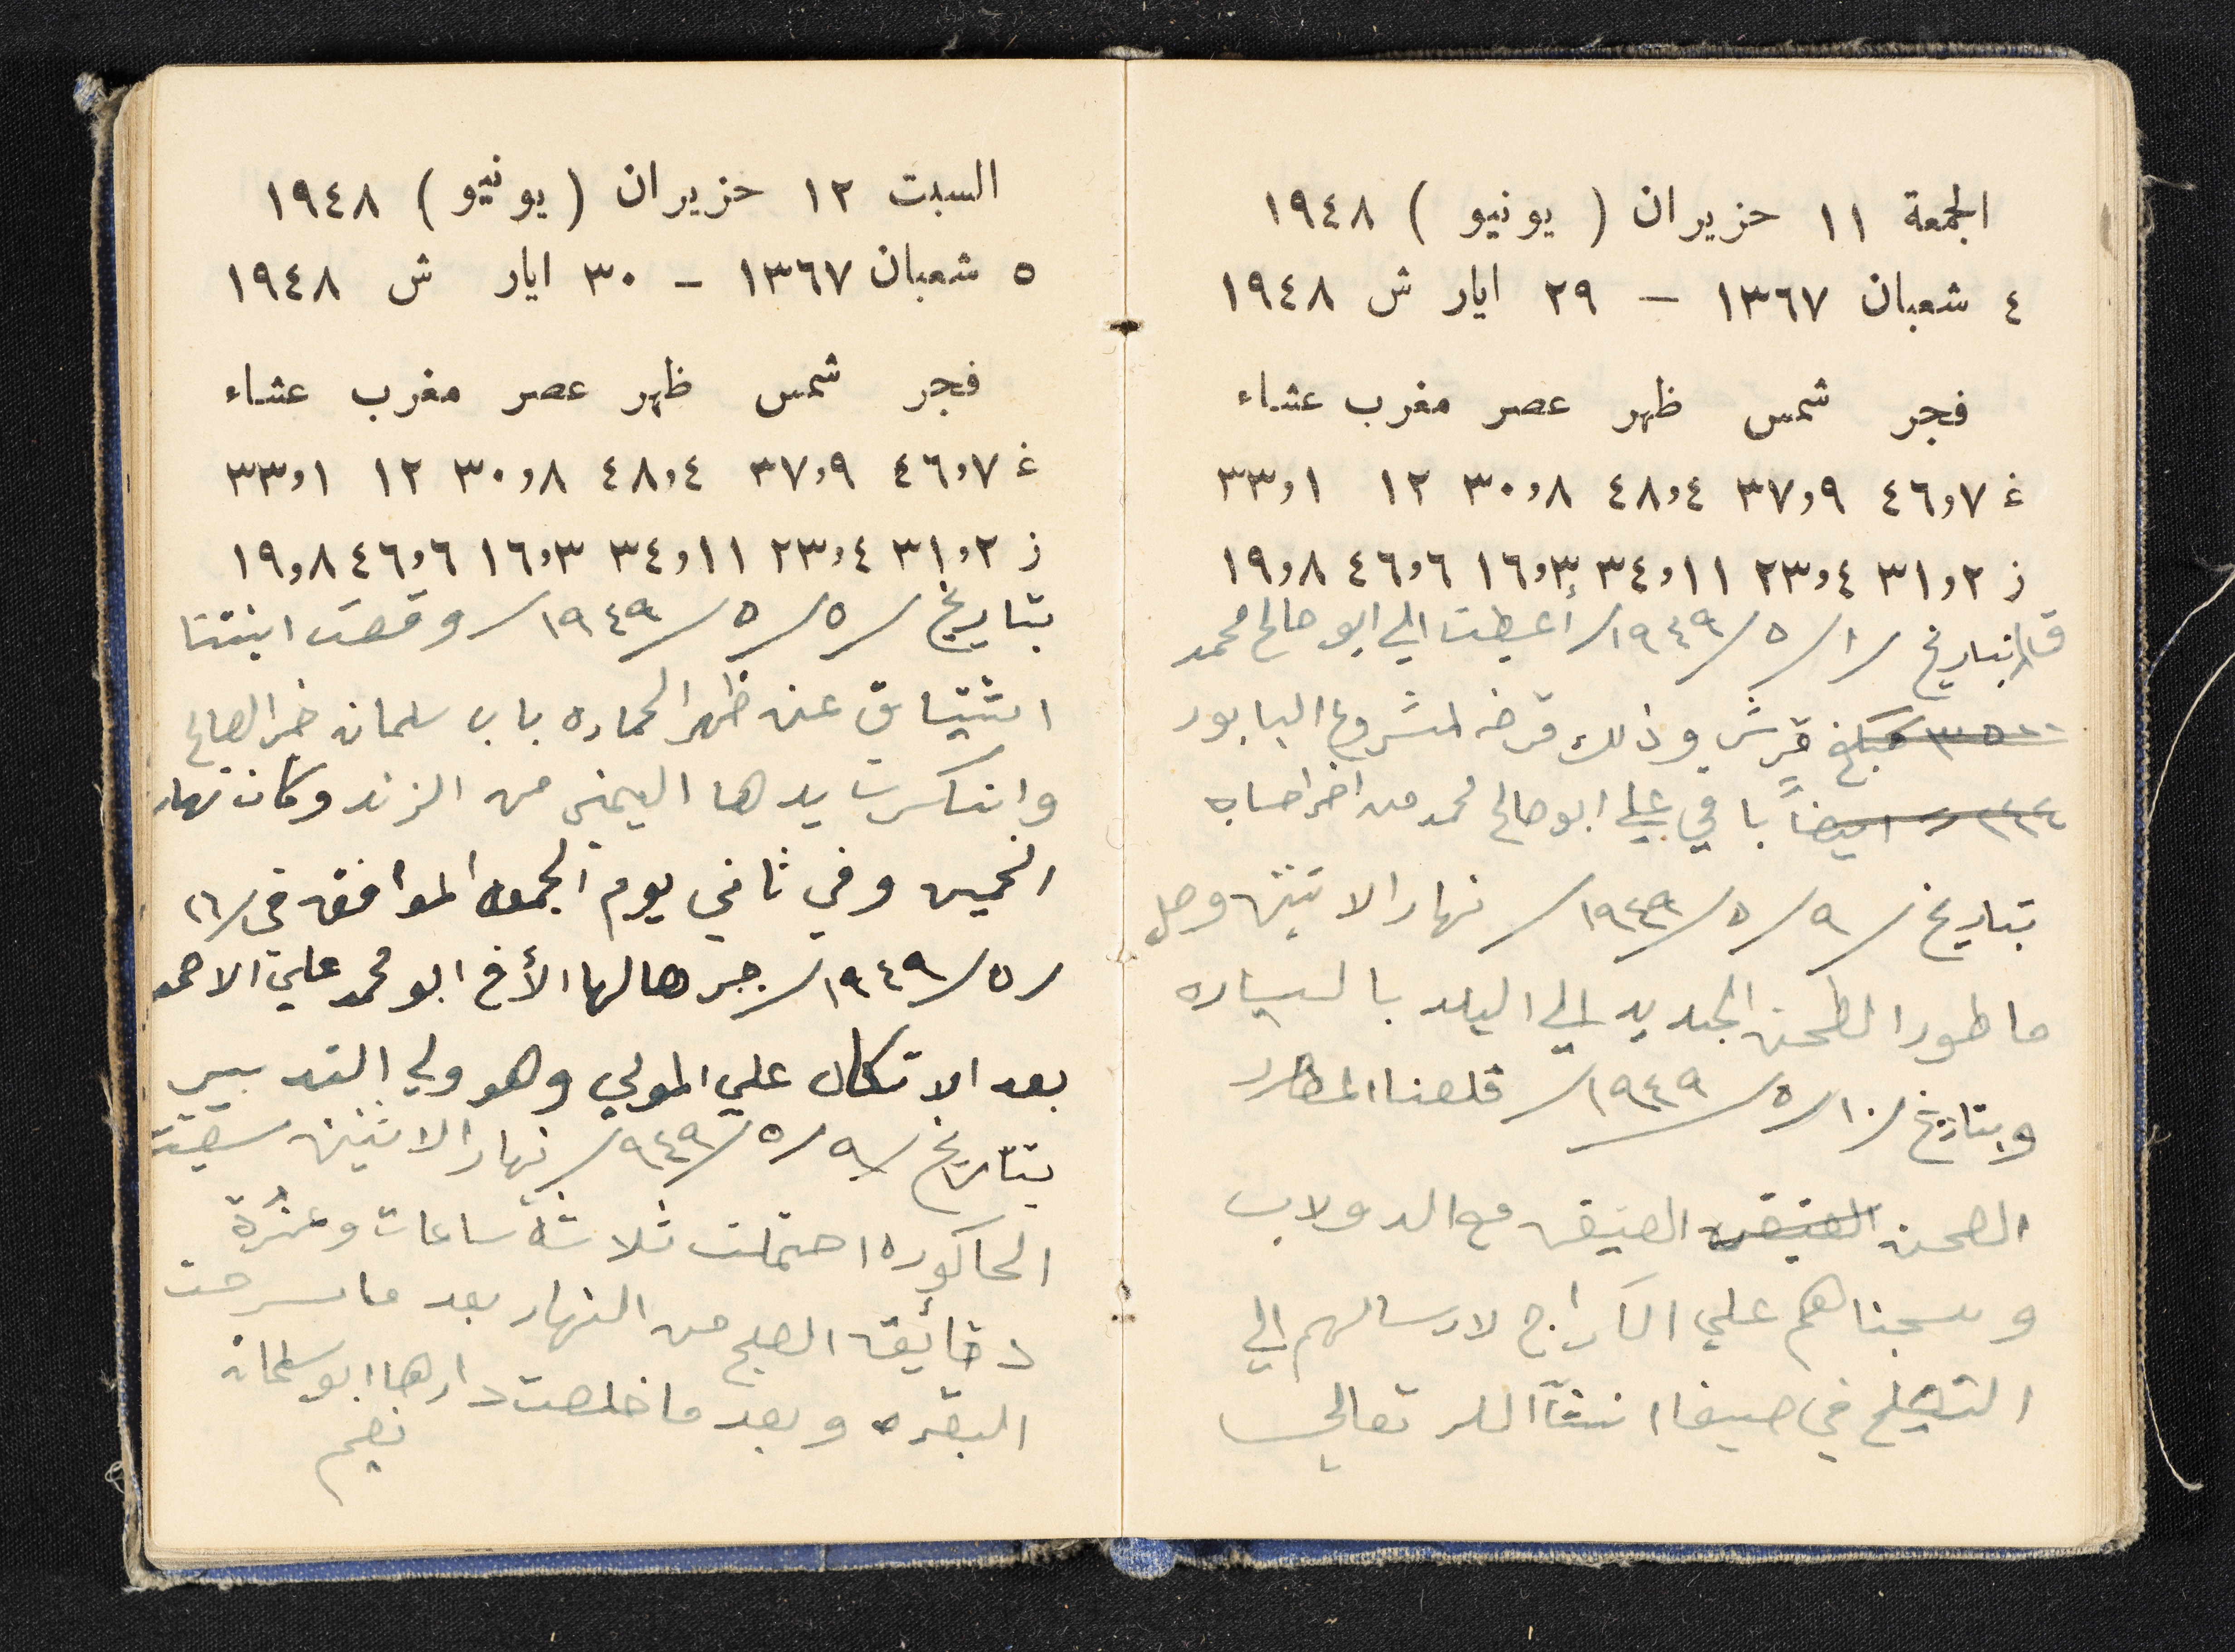 الجمعة ١١ حزيران ( يونيو ) ١٩٤٨
٤ شعبان ١٣٦٧ – ٢٩ ايار ش ١٩٤٨
فجر شمس ظهر عصر مغرب عشاء
غ ٤٦،٧ ٣٧،٩ ٤٨،٤ ٣٠،٨ ١٢ ٣٣،١
ز ٣١،٢ ٢٣،٤ ٣٤،١١ ١٦،٣ ٤٦،٦ ١٩،٨
بتاريخ /١/ ٥/ ١٩٤٩/ أعطيت الي ابو صالح محمد
٣٥٠٠ مبلغ قرش وذلك قرضه لمشروع البابور
ايضاً باقي علي ابو صالح محمد من اخر احساب
بتاريخ /٩/ ٥/ ١٩٤٩/ نهار الاثنين وصل
ماطور الطحن الجديد الي البلد بالسياره
وبتاريخ /١٠/ ٥/ ١٩٤٩/ قلعنا
مع الدولاب
وسحبناهم علي الكراج لارسالهم الي
التصليح في حيفا انشآ الله تعالي
السبت ١٢ حزيران (يونيو) ١٩٤٨
٥ شعبان ١٣٦٧ – ٣٠ ايار ش ١٩٤٨
فجر شمس ظهر عصر مغرب عشاء
غ ٤٦،٧ ٣٧،٩ ٤٨،٤ ٣٠،٨ ١٢ ٣٣،١
ز ٣١،٢ ٢٣،٤ ٣٤،١١ ١٦،٣ ٤٦،٦ ١٩،٨
بتاريخ /٥/ ٥/ ١٩٤٩/ وقعت ابنتنا
اشتياق عن ظهر الحماره باب سلمان الصالح
وانكسرت يدها اليمني من الزند وكان نهار
الخميس وفي ثاني يوم الجمعه الموافق في /٦
/٥/ ١٩٤٩/ جبرها لها الأخ ابو محمد علي الاحمد
بعد الاتكال علي المولي وهو ولي التدبير
بتاريخ /٩/ ٥/ ٩٤٩/ نهار الاثنين سقيت
الحاكوره احتملت ثلاثة ساعات وعشرة
دقائيق الصبح من النهار بعد ما سرحت
البقره وبعد ما خلصت دارها ابو سلمان
نعيم